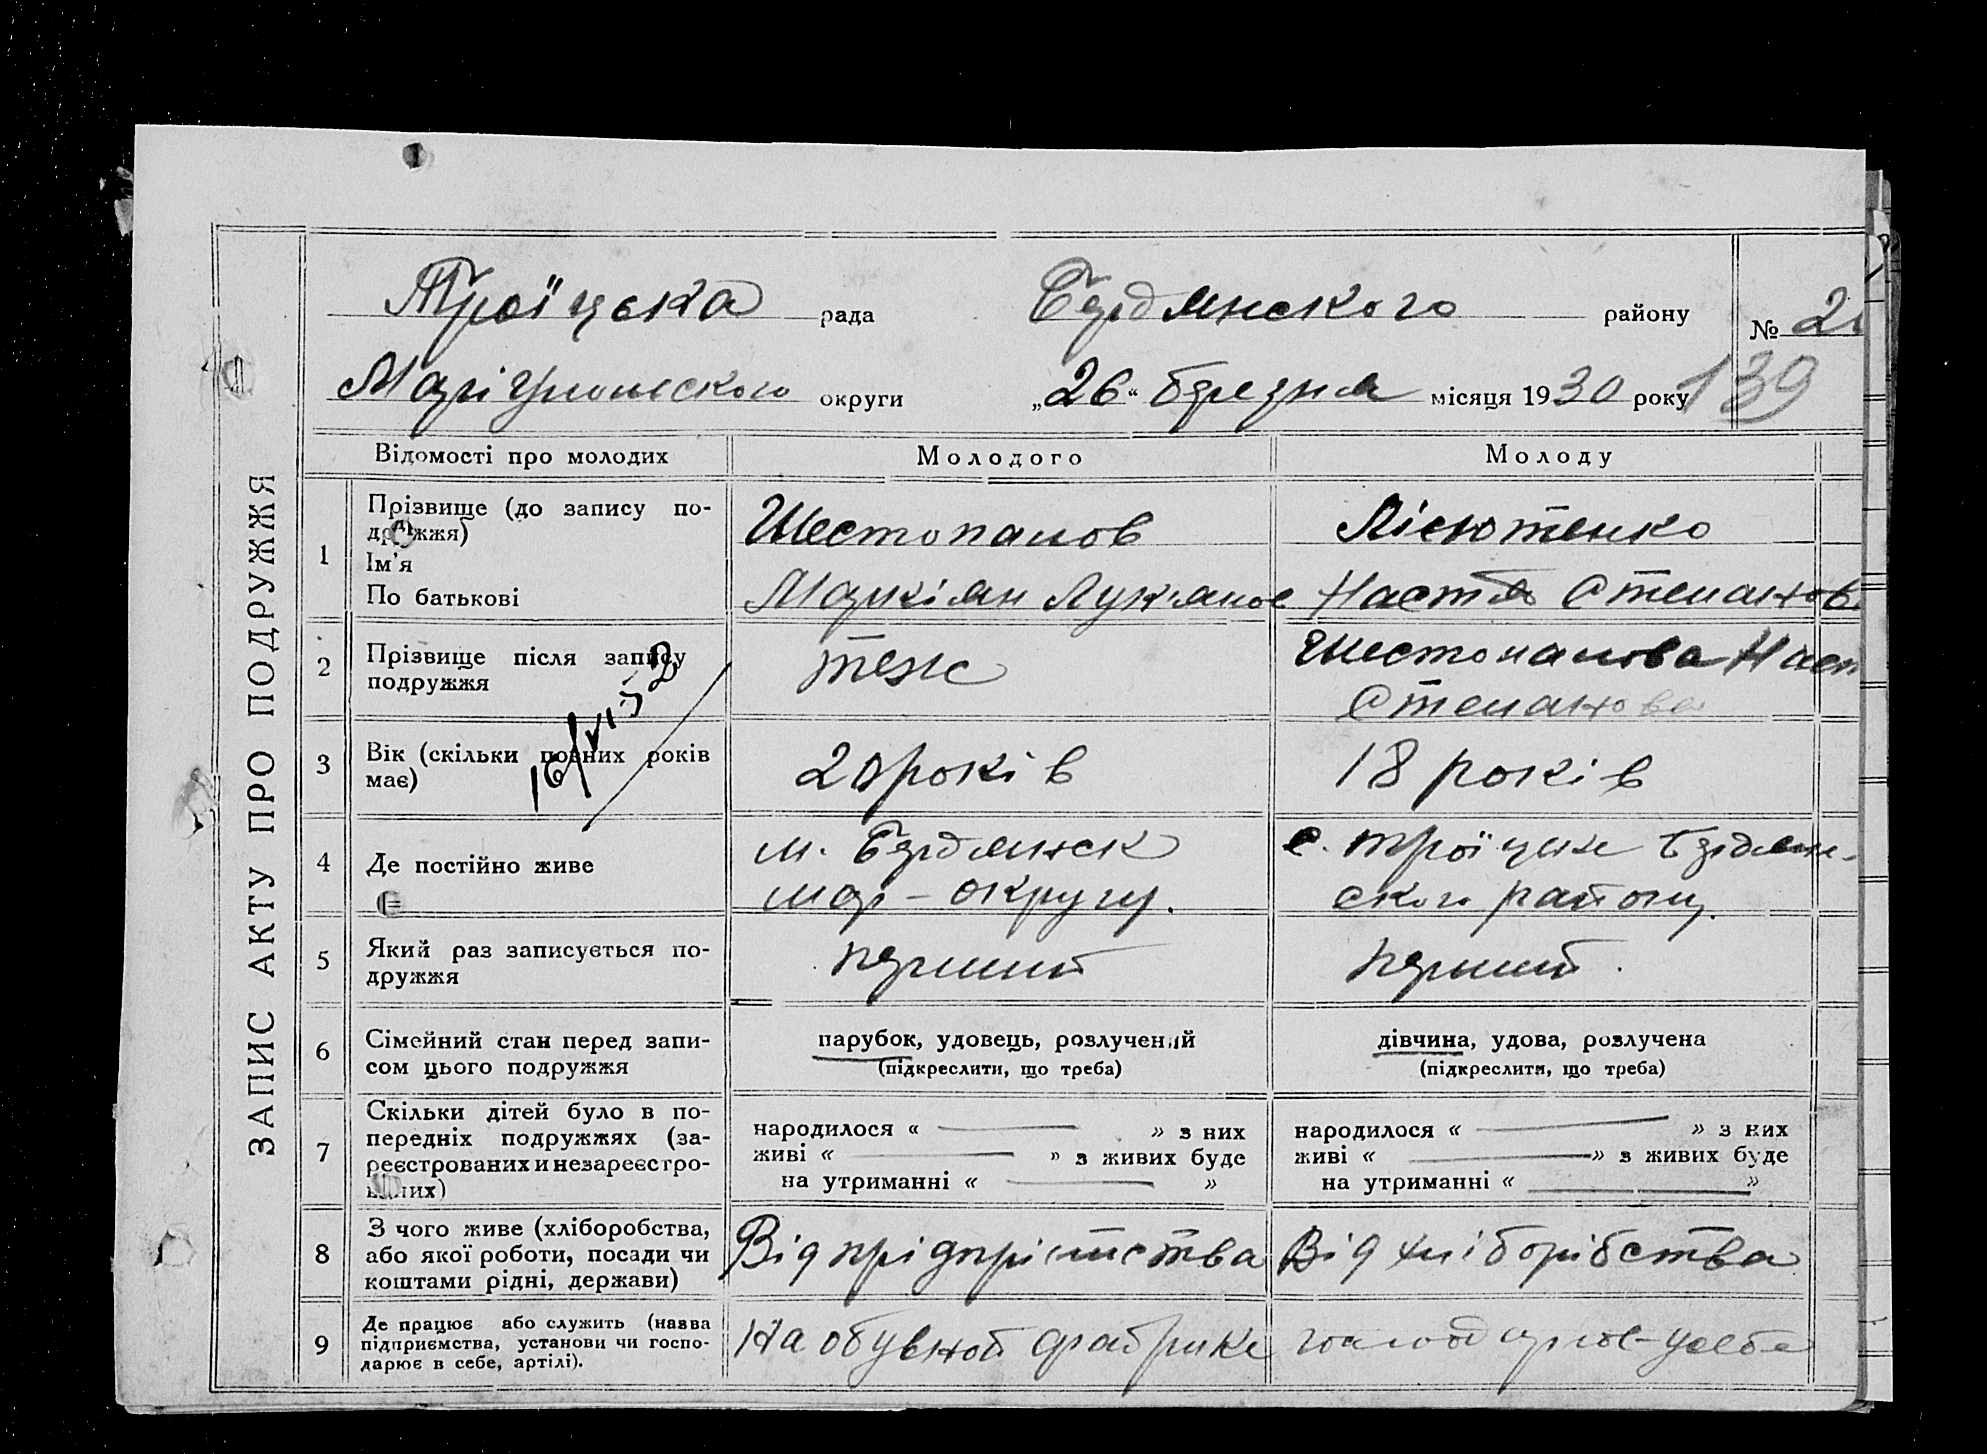 ЗАПИС АКТУ ПРО ПОДРУЖЖЯ
Троїцька рада Бердянского району № 2
Маріупольского округи „26“ березня місяця 1930 року 139
Відомості про молодих Молодого Молоду
1 Прізвище (до запису по-
дружжя) Шестопалов Лісютенко
Ім'я
По батькові Маркіян Лукянов Настя Степанов
2 Прізвище після запису теж Шестопалова Наст
подружжя Степанова
16/VII-32
3 Вік (скільки повних років 20 років 18 років
має)
4 Де постійно живе м. Бердянск с. Троїцьке Бердян-
мар-округу. ского району.
5 Який раз записується по- перший перший.
дружжя
6 Сімейний стан перед запи- парубок, удовець, розлучений дівчина, удова, розлучена
сом цього подружжя (підкреслити, що треба) (підкреслити, що треба)
7 Скільки дітей було в по-
передніх подружжях (за- народилося « — » з них народилося « — » з них
реєстрованих и незареєстро- живі « — » з живих буде живі « — » з живих буде
ваних) на утриманні « — » на утриманні « — »
8 З чого живе (хліборобства,
або якої роботи, посади чи Від прідпріімства Від хліборібства
коштами рідні, держави)
9 Де працює або служить (назва
підприємства, установи чи госпо- На обувной фабрике
дарює в себе, артілі).